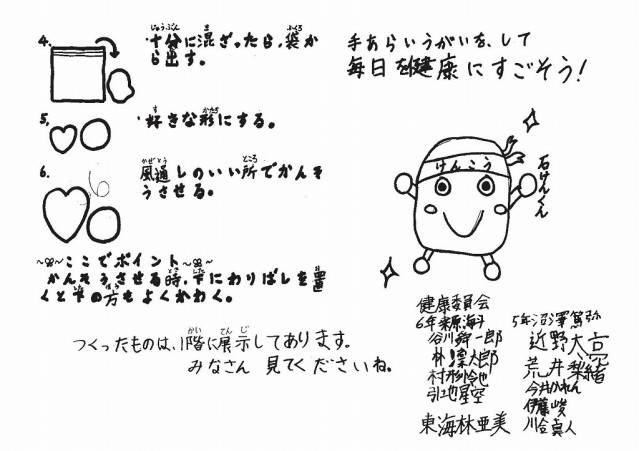 4. 十分に混ざったら、袋か
ら出す。
5. 好きな形にする。
6. 風通しのいい所でかんそ
うさせる。
～ここでポイント～
かんそうさせる時、下にわりばしを置
くと下の方もよくかわく。
つくったものは、1階に展示してあります。
みなさん 見てくださいね。
手あらいうがいを、して
毎日を健康にすごそう!
けんこう
石けんくん
健康委員会
6年 来原海斗
谷川舜一郎
林 凜太郎
村形怜也
引地星空
東海林亜美
5年 沼澤篤弥
近野大
荒井梨緒
今井かれん
伊藤峻
川合真人